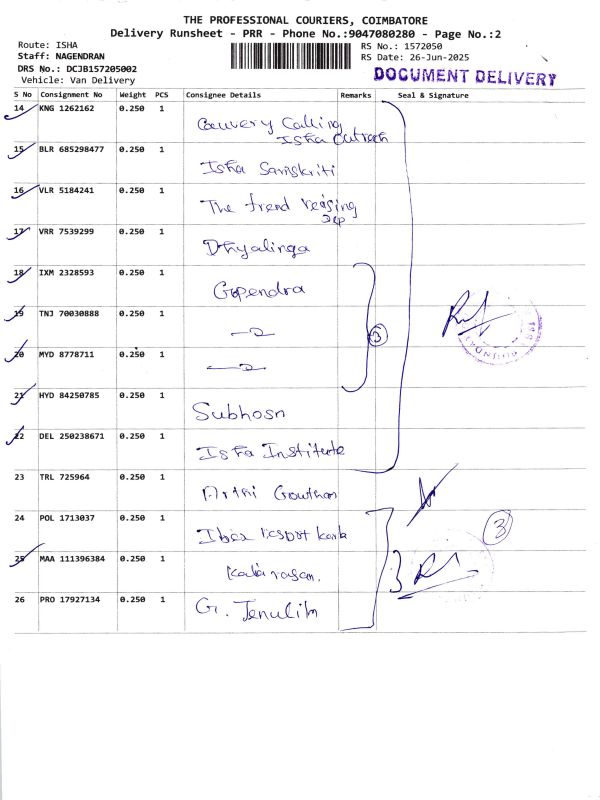 THE PROFESSIONAL COURIERS, COIMBATORE
Delivery Runsheet - PRR - Phone No.:9047080280 - Page No.:2
Route: ISHA
RS No.: 1572050
Staff: NAGENDRAN
RS Date: 26-Jun-2025
DRS No.: DCJB157205002
Vehicle: Van Delivery
DOCUMENT DELIVERY
S No Consignment No Weight PCS Consignee Details Remarks Seal & Signature
14 KNG 1262162 0.250 1 Cauvery Calling
Isha Outreach
15 BLR 685298477 0.250 1 Isha Samskriti
16 VLR 5184241 0.250 1 The trend
17 VRR 7539299 0.250 1 Dhyalinga
18 IXM 2328593 0.250 1 Gopendra
19 TNJ 70030888 0.250 1
3
20 MYD 8778711 0.250 1
21 HYD 84250785 0.250 1 Subhosn
22 DEL 250238671 0.250 1 Isha Institute
23 TRL 725964 0.250 1 Gowtham
24 POL 1713037 0.250 1
3
25 MAA 111396384 0.250 1 Kalairasan.
26 PRO 17927134 0.250 1 G.